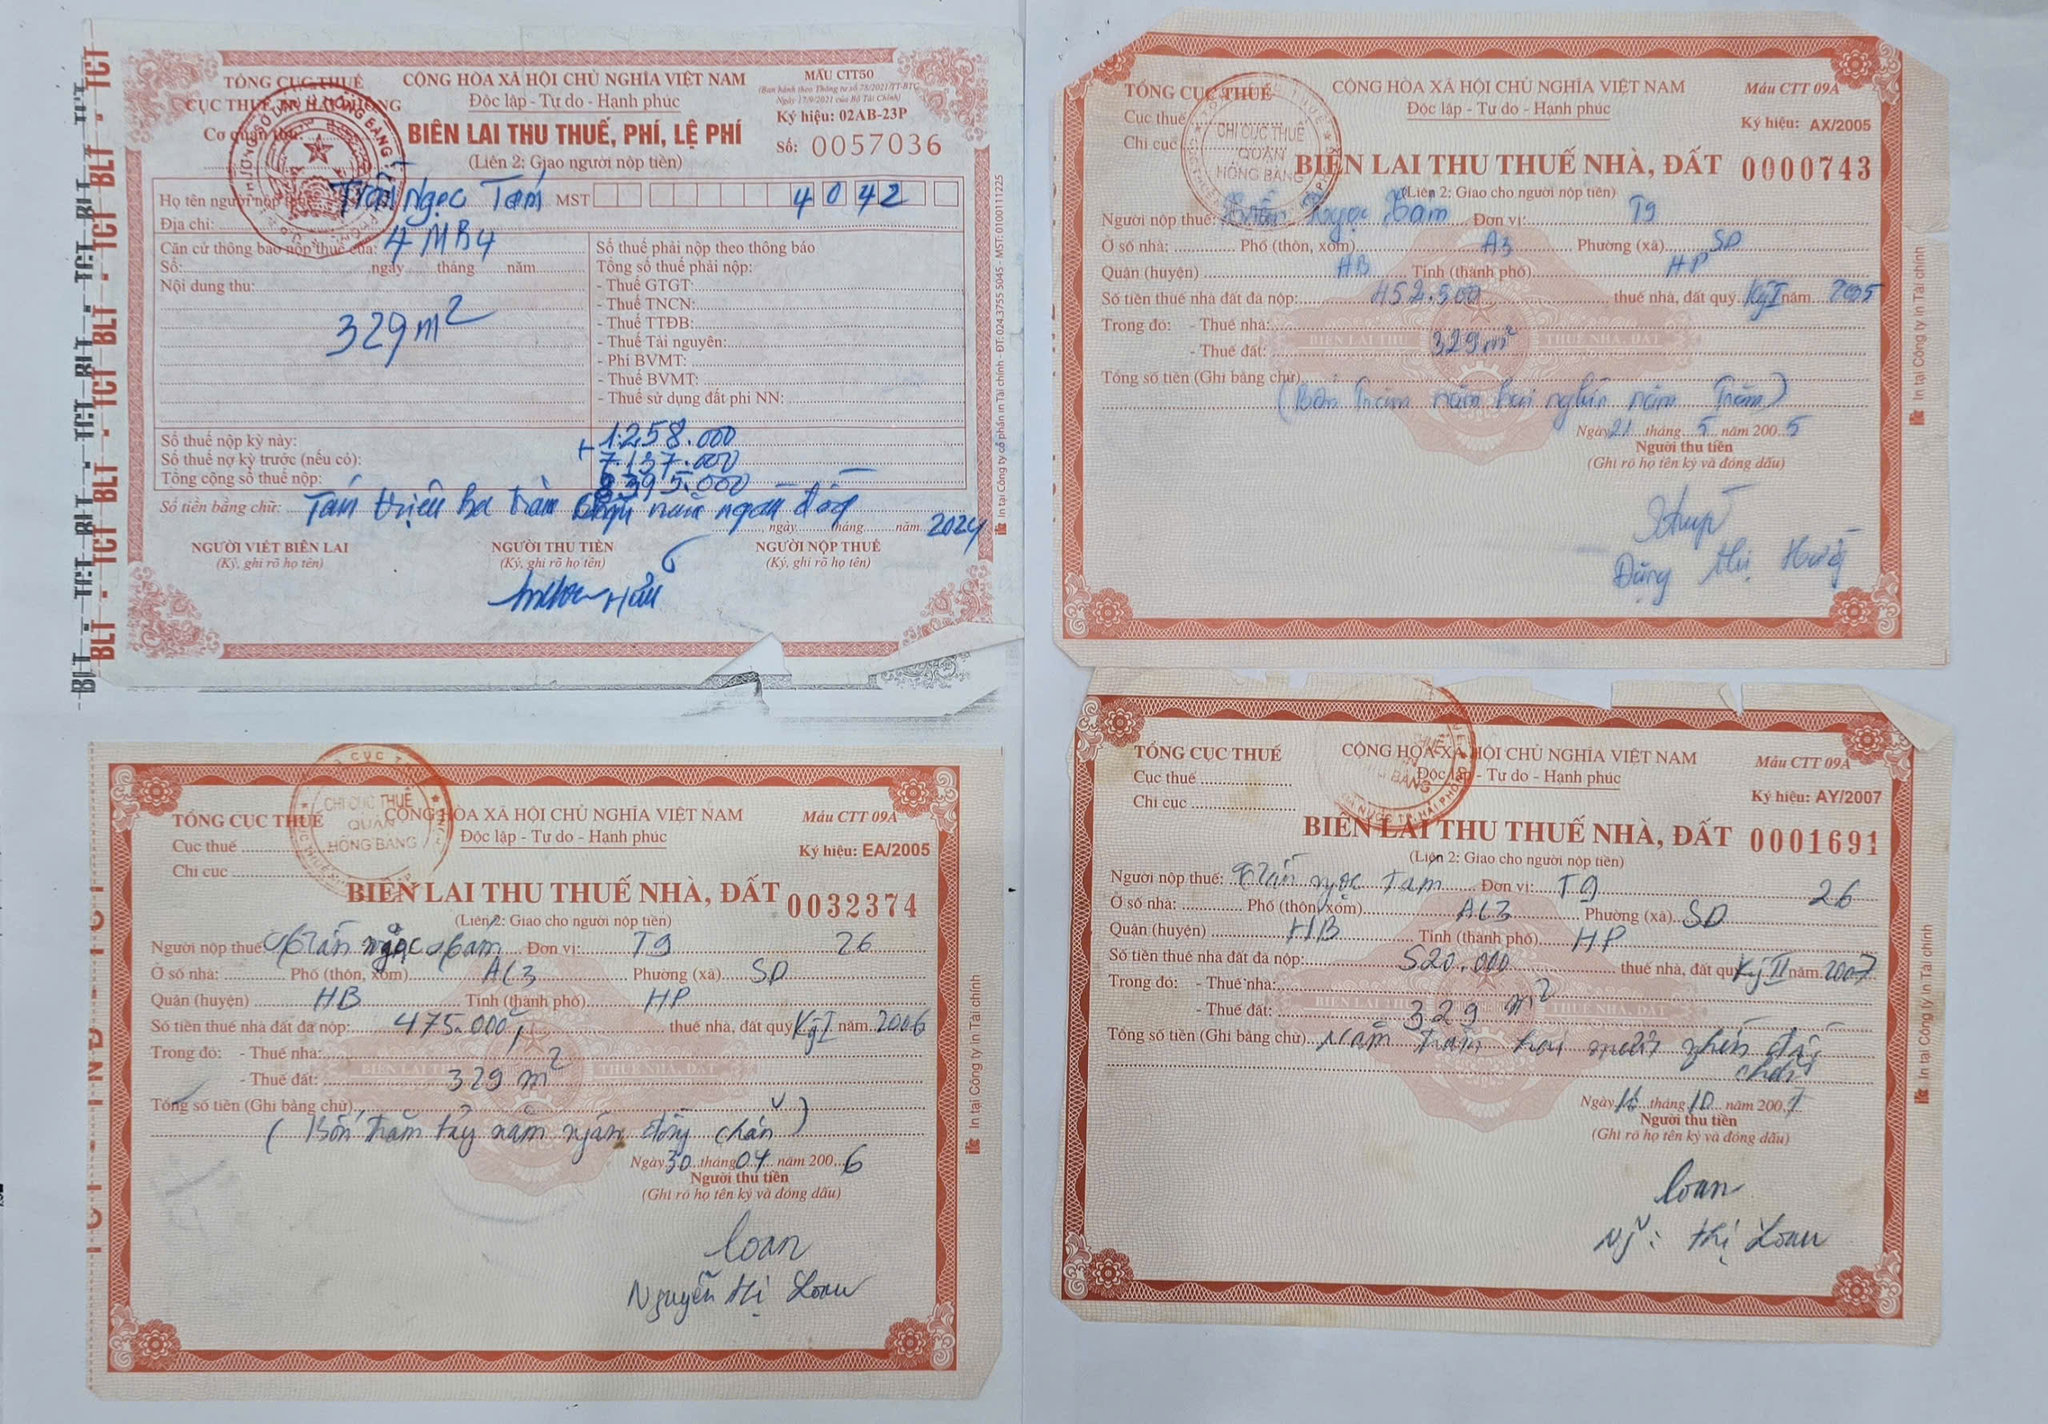 TỔNG CỤC THUẾ
CỤC THUẾ
Cơ quan thu:
CỘNG HÒA XÃ HỘI CHỦ NGHĨA VIỆT NAM
Độc lập - Tự do - Hạnh phúc
BIÊN LAI THU THUẾ, PHÍ, LỆ PHÍ
(Liên 2: Giao người nộp tiền)
MẪU CTT50
(Ban hành theo Thông tư số 78/2021/TT-BTC
Ngày 17/9/2021 của Bộ Tài Chính)
Ký hiệu: 02AB-23P
Số: 0057036
Họ tên người nộp Trần Ngọc Tám MST 4042
Địa chỉ: 4 MB4
Căn cứ thông báo nộp thuế của:
Số: ngày tháng năm
Nội dung thu:
329m²
Số thuế phải nộp theo thông báo
Tổng số thuế phải nộp:
- Thuế GTGT:
- Thuế TNCN:
- Thuế TTĐB:
- Thuế Tài nguyên:
- Phí BVMT:
- Thuế BVMT:
- Thuế sử dụng đất phi NN:
Số thuế nộp kỳ này: 1.258.000
Số thuế nợ kỳ trước (nếu có): + 7.137.000
Tổng cộng số thuế nộp: 8.395.000
Số tiền bằng chữ: Tám triệu ba trăm chín năm ngàn đồng
ngày tháng năm 2024
NGƯỜI VIẾT BIÊN LAI
(Ký, ghi rõ họ tên)
NGƯỜI THU TIỀN
(Ký, ghi rõ họ tên)
NGƯỜI NỘP THUẾ
(Ký, ghi rõ họ tên)
BLT - TCT BLT - TCT BLT - TCT BLT - TCT
In tại Công ty cổ phần in Tài chính - ĐT: 024.3755 5045 - MST: 0100111225
TỔNG CỤC THUẾ
Cục thuế
Chi cục
CHI CỤC THUẾ
QUẬN
HỒNG BÀNG
CỘNG HÒA XÃ HỘI CHỦ NGHĨA VIỆT NAM
Độc lập - Tự do - Hạnh phúc
Mẫu CTT 09A
Ký hiệu: AX/2005
BIÊN LAI THU THUẾ NHÀ, ĐẤT 0000743
(Liên 2: Giao cho người nộp tiền)
Người nộp thuế: Trần Ngọc Tám Đơn vị: T9
Ở số nhà: Phố (thôn, xóm) A3 Phường (xã) SD
Quận (huyện) HB Tỉnh (thành phố) HP
Số tiền thuế nhà đất đã nộp: 452.500 thuế nhà, đất quý Kỳ I năm 2005
Trong đó: - Thuế nhà:
- Thuế đất: 329 m²
BIÊN LAI THU THUẾ NHÀ, ĐẤT
Tổng số tiền (Ghi bằng chữ)
(Bốn trăm năm hai nghìn năm trăm)
Ngày 21 tháng 5 năm 2005
Người thu tiền
(Ghi rõ họ tên ký và đóng dấu)
Đặng thị
In tại Công ty in Tài chính
TỔNG CỤC THUẾ
Cục thuế
Chi cục
CHI CỤC THUẾ
QUẬN
HỒNG BÀNG
CỘNG HÒA XÃ HỘI CHỦ NGHĨA VIỆT NAM
Độc lập - Tự do - Hạnh phúc
Mẫu CTT 09A
Ký hiệu: EA/2005
BIÊN LAI THU THUẾ NHÀ, ĐẤT 0032374
(Liên 2: Giao cho người nộp tiền)
Người nộp thuế Trần ngọc Tám Đơn vị: T9 26
Ở số nhà: Phố (thôn, xóm) AL3 Phường (xã) SD
Quận (huyện) HB Tỉnh (thành phố) HP
Số tiền thuế nhà đất đã nộp: 475.000, thuế nhà, đất quý Kỳ I năm 2006
Trong đó: - Thuế nhà:
- Thuế đất: 329 m²
Tổng số tiền (Ghi bằng chữ)
(Bốn trăm bảy năm ngàn đồng chẵn)
Ngày 30 tháng 04 năm 2006
Người thu tiền
(Ghi rõ họ tên ký và đóng dấu)
Loan
Nguyễn thị Loan
In tại Công ty in Tài chính
TỔNG CỤC THUẾ
Cục thuế
Chi cục
CỘNG HÒA XÃ HỘI CHỦ NGHĨA VIỆT NAM
Độc lập - Tự do - Hạnh phúc
Mẫu CTT 09A
Ký hiệu: AY/2007
BIÊN LAI THU THUẾ NHÀ, ĐẤT 0001691
(Liên 2: Giao cho người nộp tiền)
Người nộp thuế: Trần ngọc Tám Đơn vị: T9 26
Ở số nhà: Phố (thôn, xóm) AL3 Phường (xã) SD
Quận (huyện) HB Tỉnh (thành phố) HP
Số tiền thuế nhà đất đã nộp: 520.000 thuế nhà, đất quý Kỳ II năm 2007
Trong đó: - Thuế nhà:
- Thuế đất: 329 m²
Tổng số tiền (Ghi bằng chữ) Năm trăm hai mươi nghìn đồng
chẵn
Ngày tháng 10 năm 2007
Người thu tiền
(Ghi rõ họ tên ký và đóng dấu)
Loan
Ng: thị Loan
In tại Công ty in Tài chính